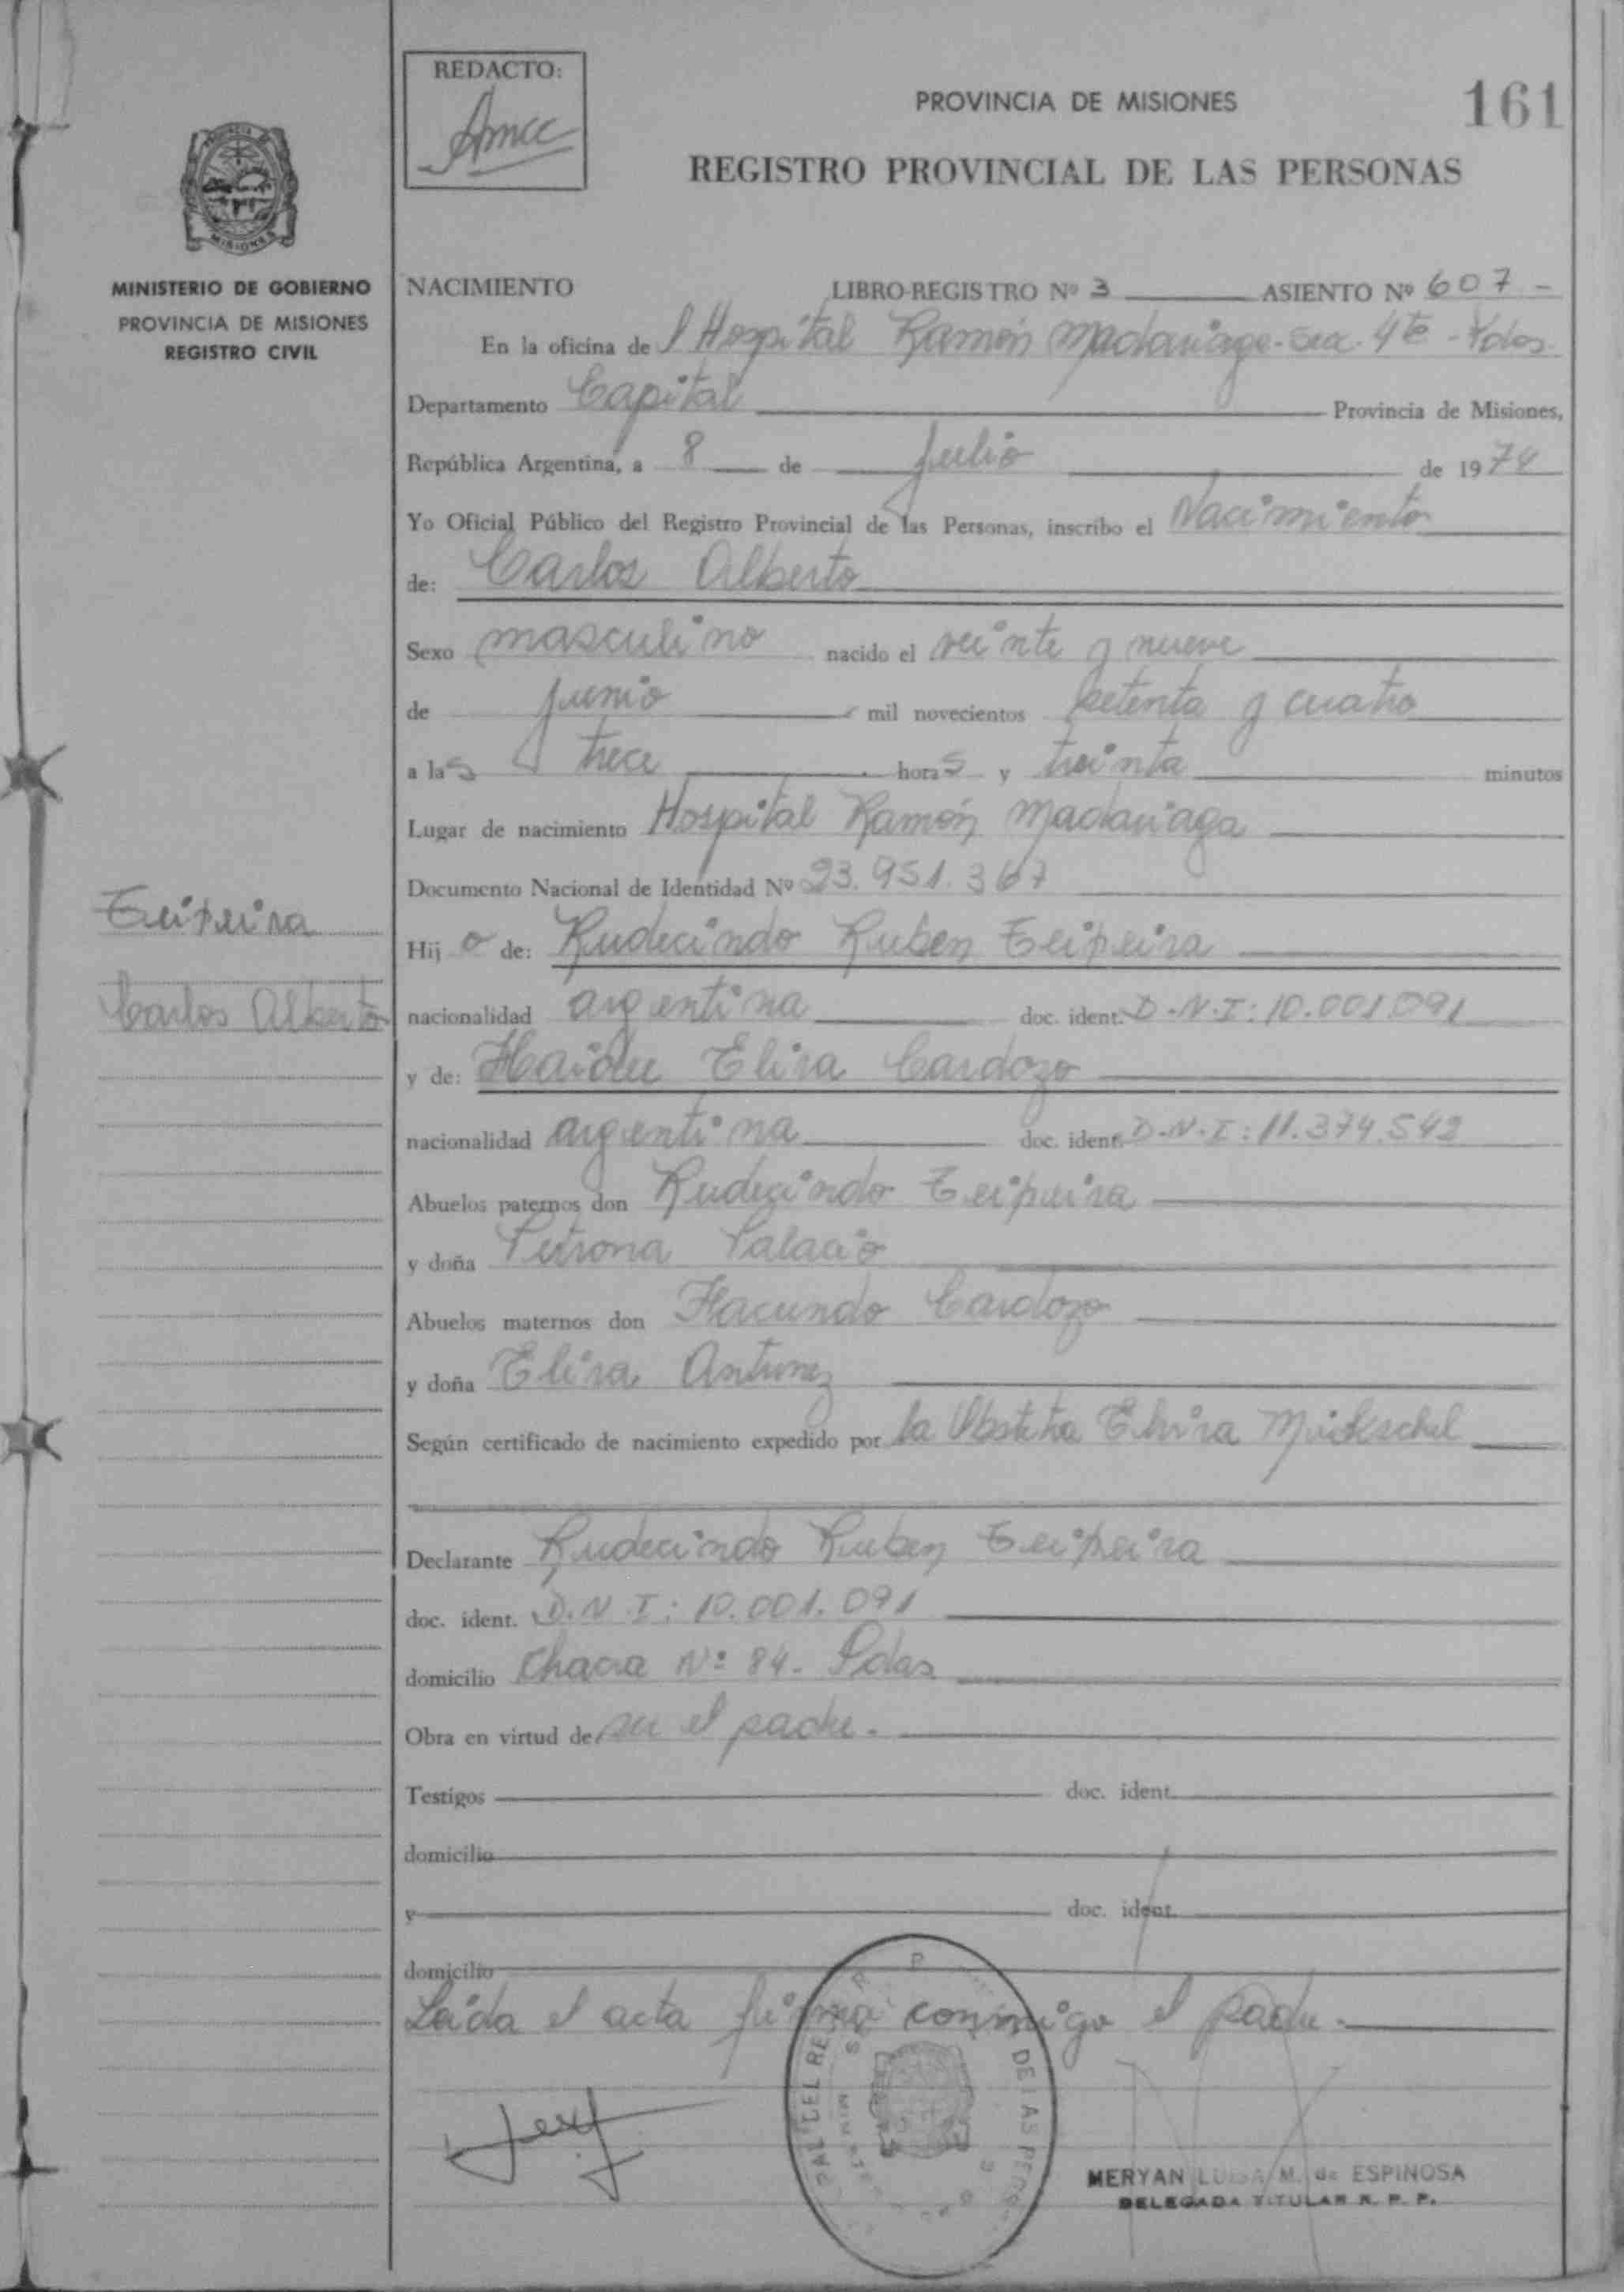 REDACTO:
PROVINCIA DE MISIONES
161
REGISTRO PROVINCIAL DE LAS PERSONAS
MISIONES
MINISTERIO DE GOBIERNO
PROVINCIA DE MISIONES
REGISTRO CIVIL
NACIMIENTO LIBRO-REGISTRO Nº 3 ASIENTO Nº 607 -
En la oficina de l Hospital Ramón Madariaga - Sec. 4ta - Pdas.
Departamento Capital Provincia de Misiones,
República Argentina, a 8 de Julio de 1974
Yo Oficial Público del Registro Provincial de las Personas, inscribo el Nacimiento
de: Carlos Alberto
Sexo masculino nacido el veinte y nueve
de junio mil novecientos setenta y cuatro
a las trece horas y treinta minutos
Lugar de nacimiento Hospital Ramón Madariaga
Documento Nacional de Identidad Nº 23.951.367
Teixeira
Carlos Alberto
Hijo de: Rudecindo Ruben Teixeira
nacionalidad argentina doc. ident. D.N.I: 10.001.091
y de: Haidee Elisa Cardozo
nacionalidad argentina doc. ident. D.N.I: 11.374.542
Abuelos paternos don Rudecindo Teixeira
y doña Petrona Palacio
Abuelos maternos don Facundo Cardozo
y doña Elisa Antunez
Según certificado de nacimiento expedido por la Obstetra Elvira
Declarante Rudecindo Ruben Teixeira
doc. ident. D.N.I: 10.001.091
domicilio Chacra Nº 84. Pdas
Obra en virtud de ser el padre.
Testigos doc. ident.
domicilio
y doc. ident.
domicilio
Leída el acta firma conmigo el padre.
MERYAN LUISA M. de ESPINOSA
DELEGADA TITULAR R. P. P.